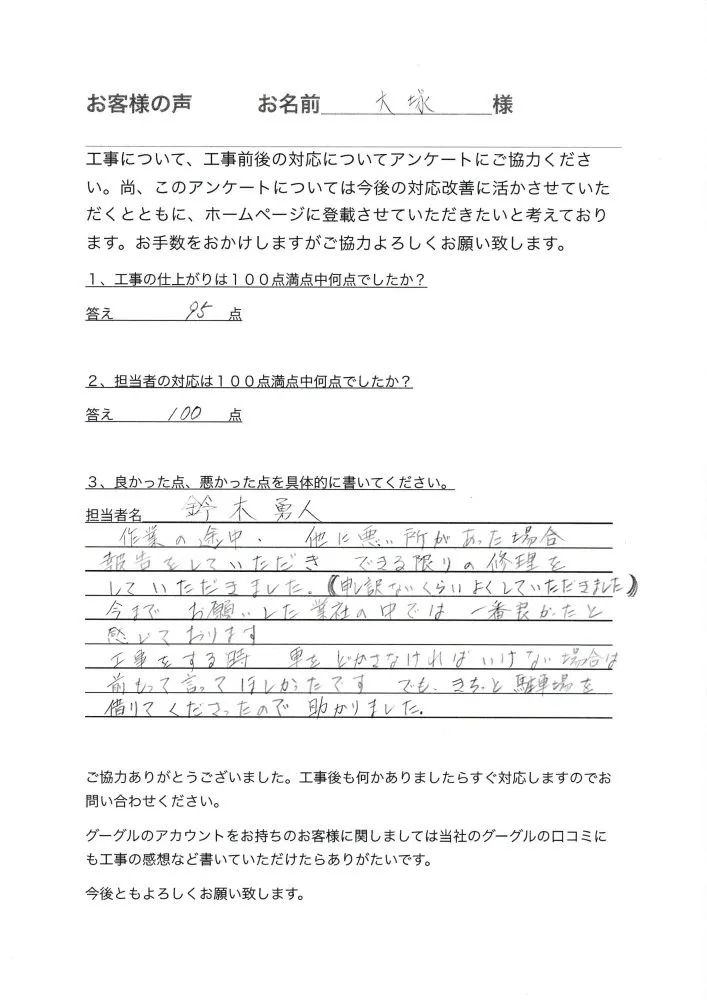 お客様の声 お名前 大塚 様
工事について、工事前後の対応についてアンケートにご協力くださ
い。尚、このアンケートについては今後の対応改善に活かさせていた
だくとともに、ホームページに登載させていただきたいと考えており
ます。お手数をおかけしますがご協力よろしくお願い致します。
１、工事の仕上がりは１００点満点中何点でしたか？
答え 95 点
２、担当者の対応は１００点満点中何点でしたか？
答え 100 点
３、良かった点、悪かった点を具体的に書いてください。
担当者名 鈴木勇人
作業の途中、他に悪い所があった場合
報告をしていただき できる限りの修理を
していただきました。(申し訳ないくらいよくしていただきました)
今まで お願いした業社の中では 一番良かたと
感じております
工事をする時 車をどかさなければいけない場合は
前もって言ってほしかったです でも、きちっと駐車場を
借りてくださったので助かりました.
ご協力ありがとうございました。工事後も何かありましたらすぐ対応しますのでお
問い合わせください。
グーグルのアカウントをお持ちのお客様に関しましては当社のグーグルの口コミに
も工事の感想など書いていただけたらありがたいです。
今後ともよろしくお願い致します。